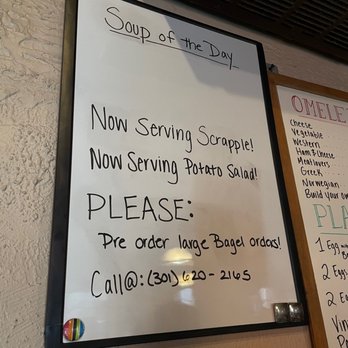 Soup of the Day
Now Serving Scrapple!
Now Serving Potato Salad!
PLEASE:
Pre order large Bagel orders!
Call@: (301) 620-2165
OMELE
Cheese
Vegetable
Western
Ham & Cheese
Meat lovers
Greek
Norwegian
Build your ow
PLA
1 Egg
2 Eggs
2 E
Vin